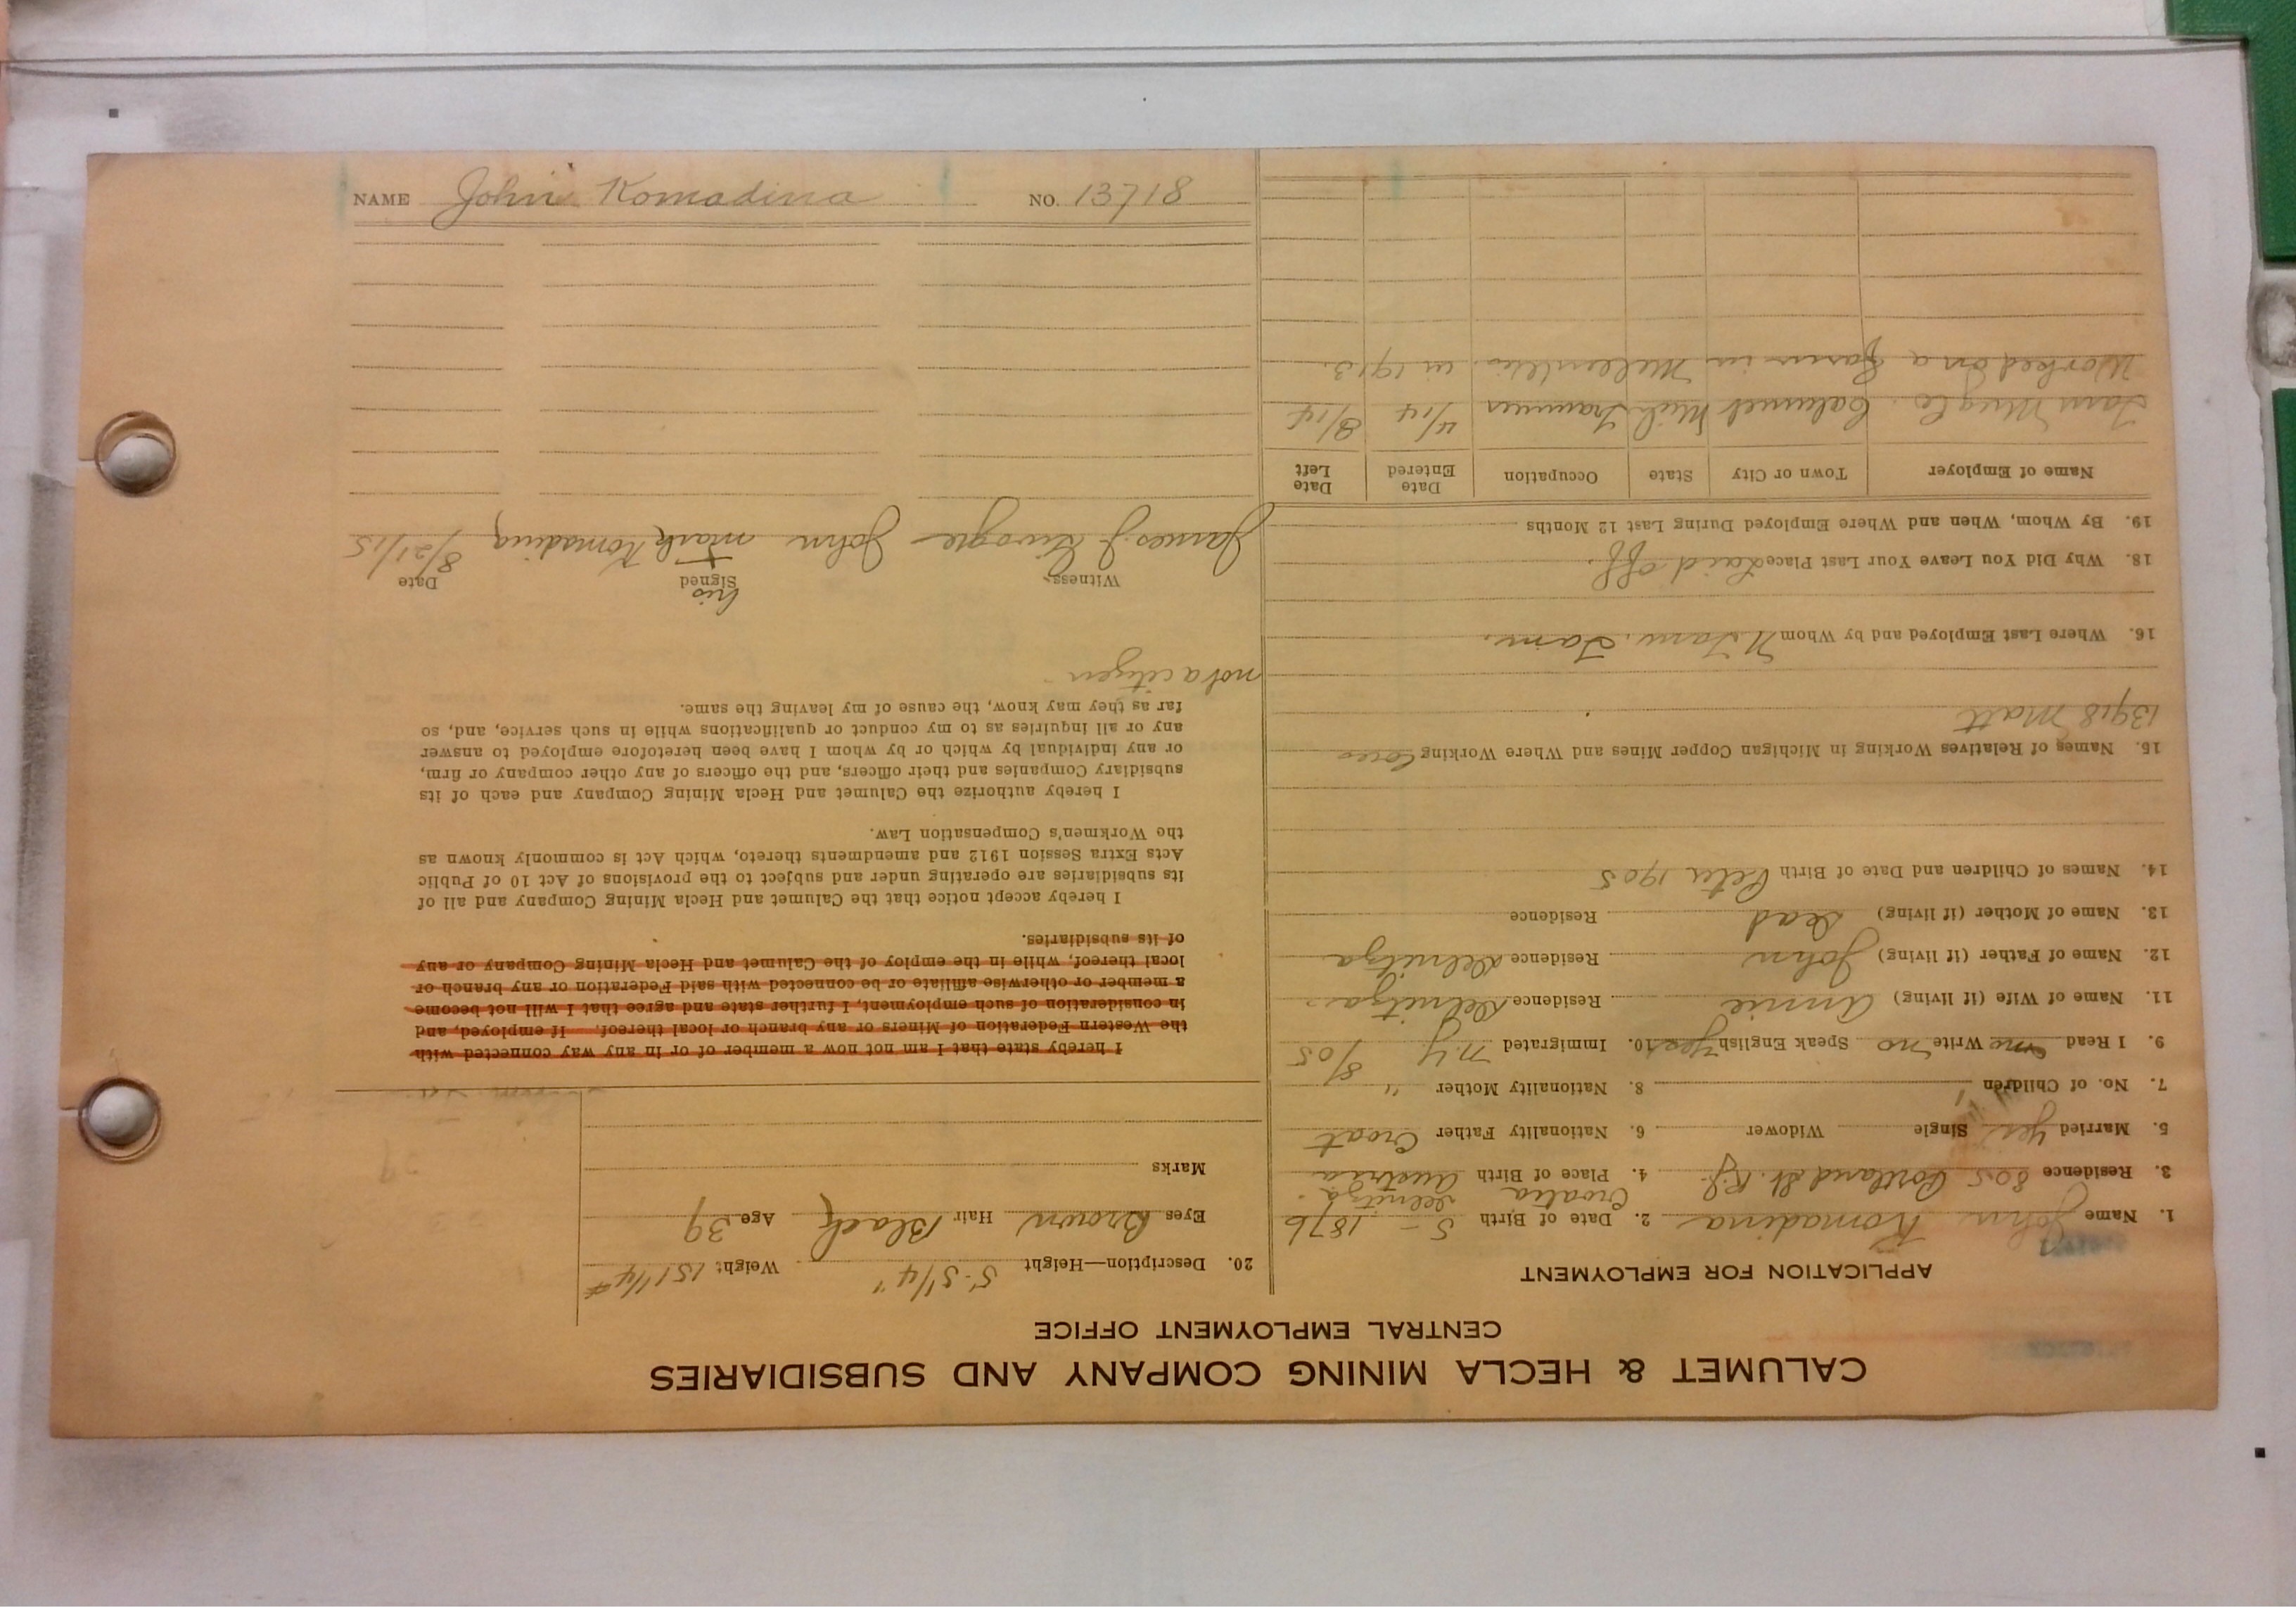 CALUMET & HECLA MINING COMPANY AND SUBSIDIARIES
CENTRAL EMPLOYMENT OFFICE
APPLICATION FOR EMPLOYMENT
1. Name John Komadina 2. Date of Birth 5 - 1876
Croatia
3. Residence 805 Portland St. 4. Place of Birth Austria
5. Married Yes Single Widower 6. Nationality Father Croat
7. No. of Children 1 8. Nationality Mother "
9. I Read Write no Speak English Yes 10. Immigrated N.Y. 8/05
11. Name of Wife (if living) Annie Residence
12. Name of Father (if living) John Residence
13. Name of Mother (if living) Dead Residence
14. Names of Children and Date of Birth Peter 1905
15. Names of Relatives Working in Michigan Copper Mines and Where Working
13918 Matt
16. Where Last Employed and by Whom
18. Why Did You Leave Your Last Place Laid off.
19. By Whom, When and Where Employed During Last 12 Months
Name of Employer Town or City State Occupation Date Entered Date Left
Tam Mng Co. Calumet Mich Trammer 4/14 8/14
Worked on a farm in in 1913.
20. Description—Height 5-5 1/4" Weight 151 1/4 #
Eyes Brown Hair Black Age 39
Marks
I hereby state that I am not now a member of or in any way connected with
the Western Federation of Miners or any branch or local thereof. If employed, and
in consideration of such employment, I further state and agree that I will not become
a member or otherwise affiliate or be connected with said Federation or any branch or
local thereof, while in the employ of the Calumet and Hecla Mining Company or any
of its subsidiaries.
I hereby accept notice that the Calumet and Hecla Mining Company and all of
its subsidiaries are operating under and subject to the provisions of Act 10 of Public
Acts Extra Session 1912 and amendments thereto, which Act is commonly known as
the Workmen's Compensation Law.
I hereby authorize the Calumet and Hecla Mining Company and each of its
subsidiary Companies and their officers, and the officers of any other company or firm,
or any individual by which or by whom I have been heretofore employed to answer
any or all inquiries as to my conduct or qualifications while in such service, and, so
far as they may know, the cause of my leaving the same.
not a citizen
his
Witness Signed Date
James J. John + mark Komadina 8/21/15
NAME John Komadina NO. 13718